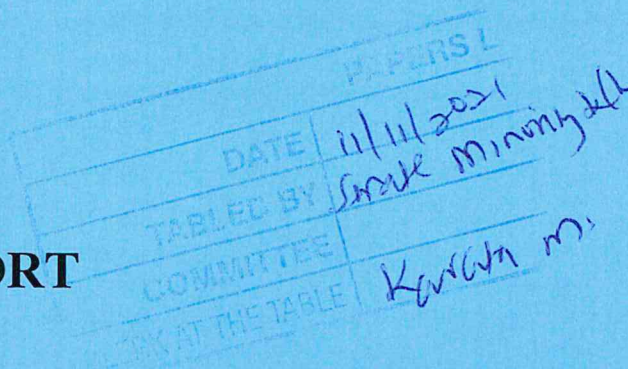 PAPERS L
DATE 11/11/2021
TABLED BY Senate Minority
COMMITTEE
AT THE TABLE
ORT